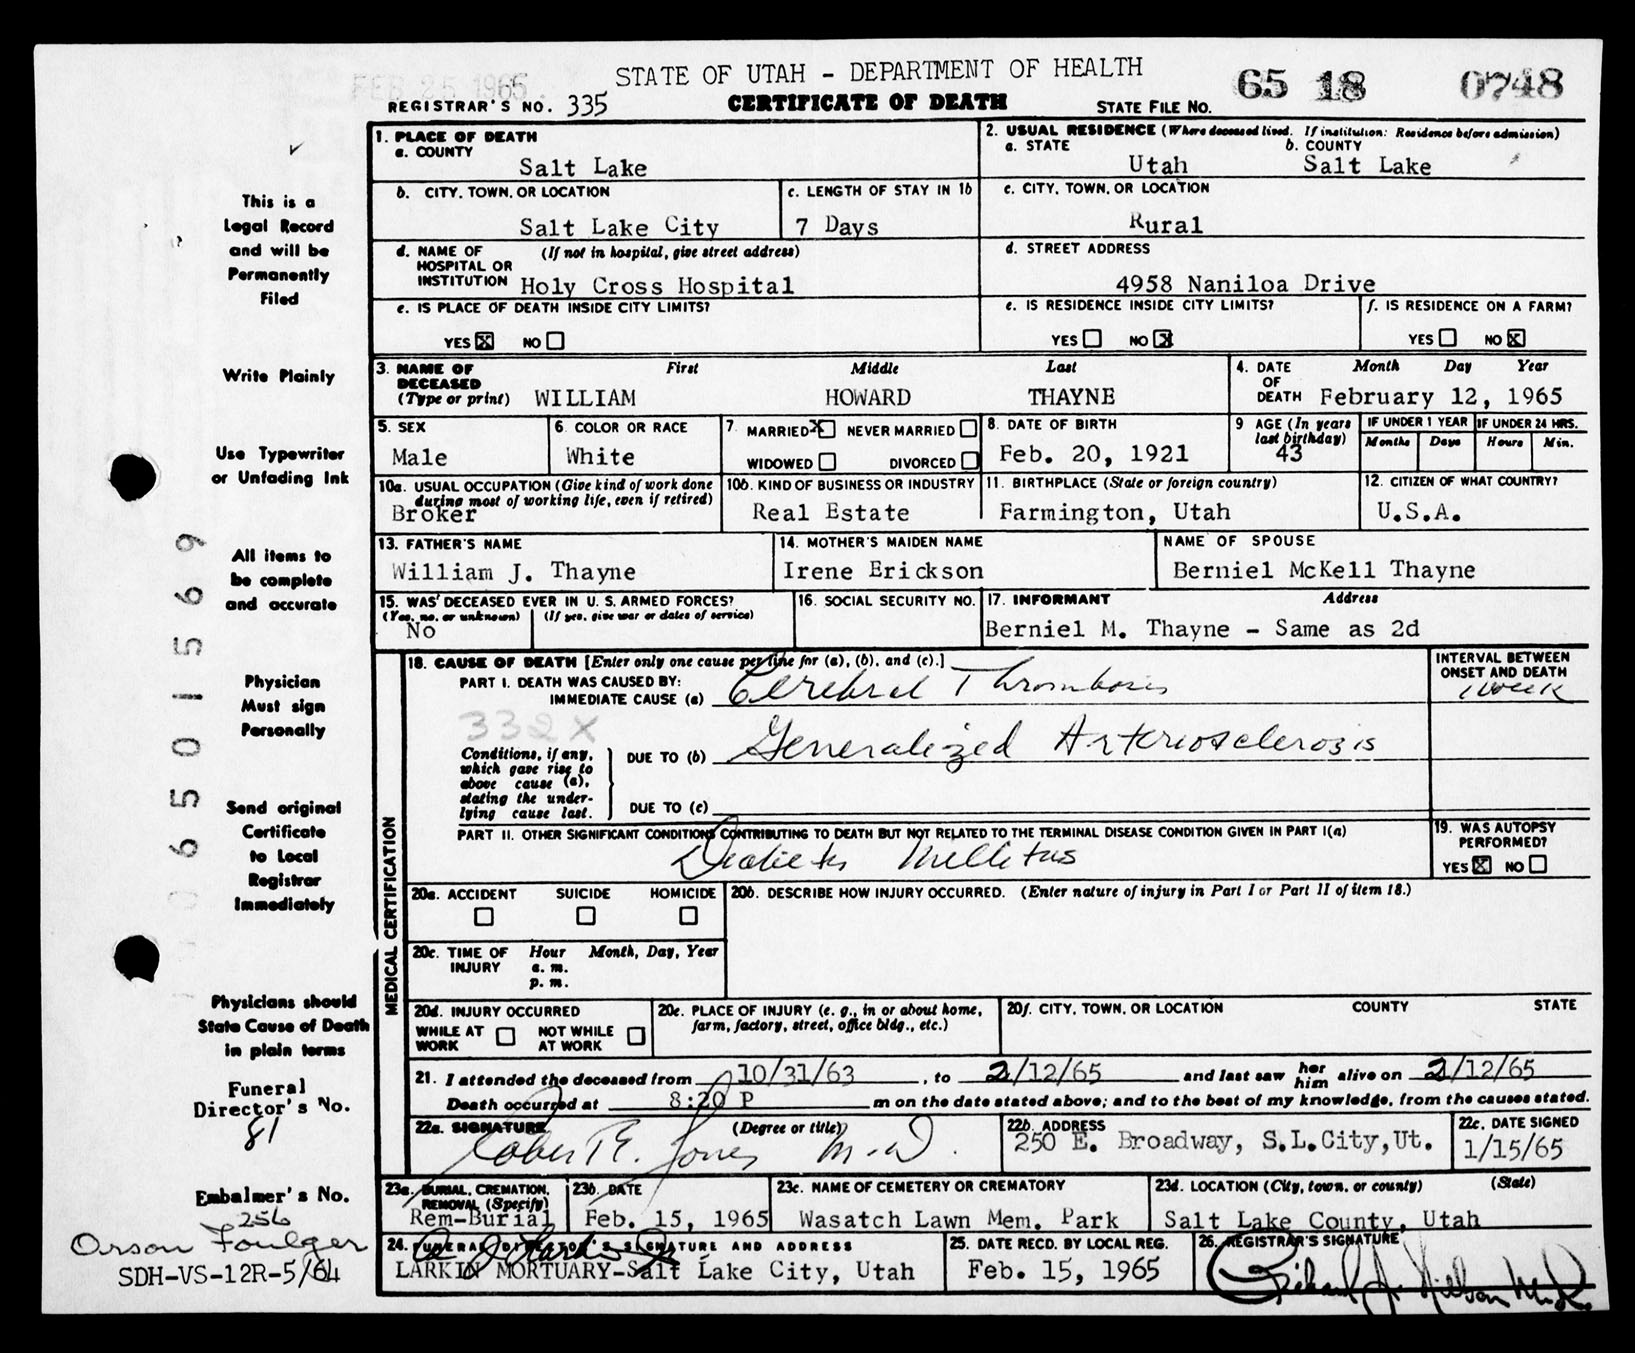 FEB 25 1965
STATE OF UTAH - DEPARTMENT OF HEALTH
65 18 0748
REGISTRAR'S NO. 335
CERTIFICATE OF DEATH
STATE FILE NO.
1. PLACE OF DEATH
a. COUNTY
Salt Lake
2. USUAL RESIDENCE (Where deceased lived. If institution: Residence before admission)
a. STATE b. COUNTY
Utah Salt Lake
b. CITY, TOWN, OR LOCATION
Salt Lake City
c. LENGTH OF STAY IN 1b
7 Days
c. CITY, TOWN, OR LOCATION
Rural
d. NAME OF (If not in hospital, give street address)
HOSPITAL OR
INSTITUTION Holy Cross Hospital
d. STREET ADDRESS
4958 Naniloa Drive
e. IS PLACE OF DEATH INSIDE CITY LIMITS?
YES X NO
e. IS RESIDENCE INSIDE CITY LIMITS?
YES NO X
f. IS RESIDENCE ON A FARM?
YES NO X
3. NAME OF First Middle Last
DECEASED
(Type or print) WILLIAM HOWARD THAYNE
4. DATE Month Day Year
OF
DEATH February 12, 1965
5. SEX
Male
6. COLOR OR RACE
White
7. MARRIED X NEVER MARRIED
WIDOWED DIVORCED
8. DATE OF BIRTH
Feb. 20, 1921
9 AGE (In years
last birthday)
43
IF UNDER 1 YEAR
Months Days
IF UNDER 24 HRS.
Hours Min.
10a. USUAL OCCUPATION (Give kind of work done
during most of working life, even if retired)
Broker
10b. KIND OF BUSINESS OR INDUSTRY
Real Estate
11. BIRTHPLACE (State or foreign country)
Farmington, Utah
12. CITIZEN OF WHAT COUNTRY?
U.S.A.
13. FATHER'S NAME
William J. Thayne
14. MOTHER'S MAIDEN NAME
Irene Erickson
NAME OF SPOUSE
Berniel McKell Thayne
15. WAS DECEASED EVER IN U. S. ARMED FORCES?
(Yes, no, or unknown) (If yes, give war or dates of service)
No
16. SOCIAL SECURITY NO.
17. INFORMANT Address
Berniel M. Thayne - Same as 2d
MEDICAL CERTIFICATION
18. CAUSE OF DEATH [Enter only one cause per line for (a), (b), and (c).]
PART I. DEATH WAS CAUSED BY:
IMMEDIATE CAUSE (a) Cerebral Thrombosis
INTERVAL BETWEEN
ONSET AND DEATH
1 week
332X
Conditions, if any,
which gave rise to
above cause (a),
stating the under-
lying cause last.
DUE TO (b) Generalized Arteriosclerozis
DUE TO (c)
PART II. OTHER SIGNIFICANT CONDITIONS CONTRIBUTING TO DEATH BUT NOT RELATED TO THE TERMINAL DISEASE CONDITION GIVEN IN PART I(a)
Diabetes Mellitus
19. WAS AUTOPSY
PERFORMED?
YES X NO
20a. ACCIDENT SUICIDE HOMICIDE
20b. DESCRIBE HOW INJURY OCCURRED. (Enter nature of injury in Part I or Part II of item 18.)
20c. TIME OF Hour Month, Day, Year
INJURY a. m.
p. m.
20d. INJURY OCCURRED
WHILE AT WORK NOT WHILE AT WORK
20e. PLACE OF INJURY (e. g., in or about home,
farm, factory, street, office bldg., etc.)
20f. CITY, TOWN, OR LOCATION COUNTY STATE
21. I attended the deceased from 10/31/63, to 2/12/65 and last saw her him alive on 2/12/65
Death occurred at 8:20 P m on the date stated above; and to the best of my knowledge, from the causes stated.
22a. SIGNATURE (Degree or title)
Robert E. Jones M.D.
22b. ADDRESS
250 E. Broadway, S.L.City,Ut.
22c. DATE SIGNED
1/15/65
23a. BURIAL, CREMATION,
REMOVAL (Specify)
Rem-Burial
23b. DATE
Feb. 15, 1965
23c. NAME OF CEMETERY OR CREMATORY
Wasatch Lawn Mem. Park
23d. LOCATION (City, town, or county) (State)
Salt Lake County, Utah
24. FUNERAL DIRECTOR'S SIGNATURE AND ADDRESS
LARKIN MORTUARY-Salt Lake City, Utah
25. DATE RECD. BY LOCAL REG.
Feb. 15, 1965
26. REGISTRAR'S SIGNATURE
This is a
Legal Record
and will be
Permanently
Filed
Write Plainly
Use Typewriter
or Unfading Ink
All items to
be complete
and accurate
Physician
Must sign
Personally
Send original
Certificate
to Local
Registrar
Immediately
Physicians should
State Cause of Death
in plain terms
Funeral
Director's No.
81
Embalmer's No.
256
Orson Foulger
SDH-VS-12R-5/64
0 6 5 0 1 5 6 9